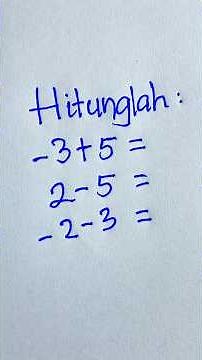 Hitunglah :
-3+5 =
2-5 =
-2-3 =